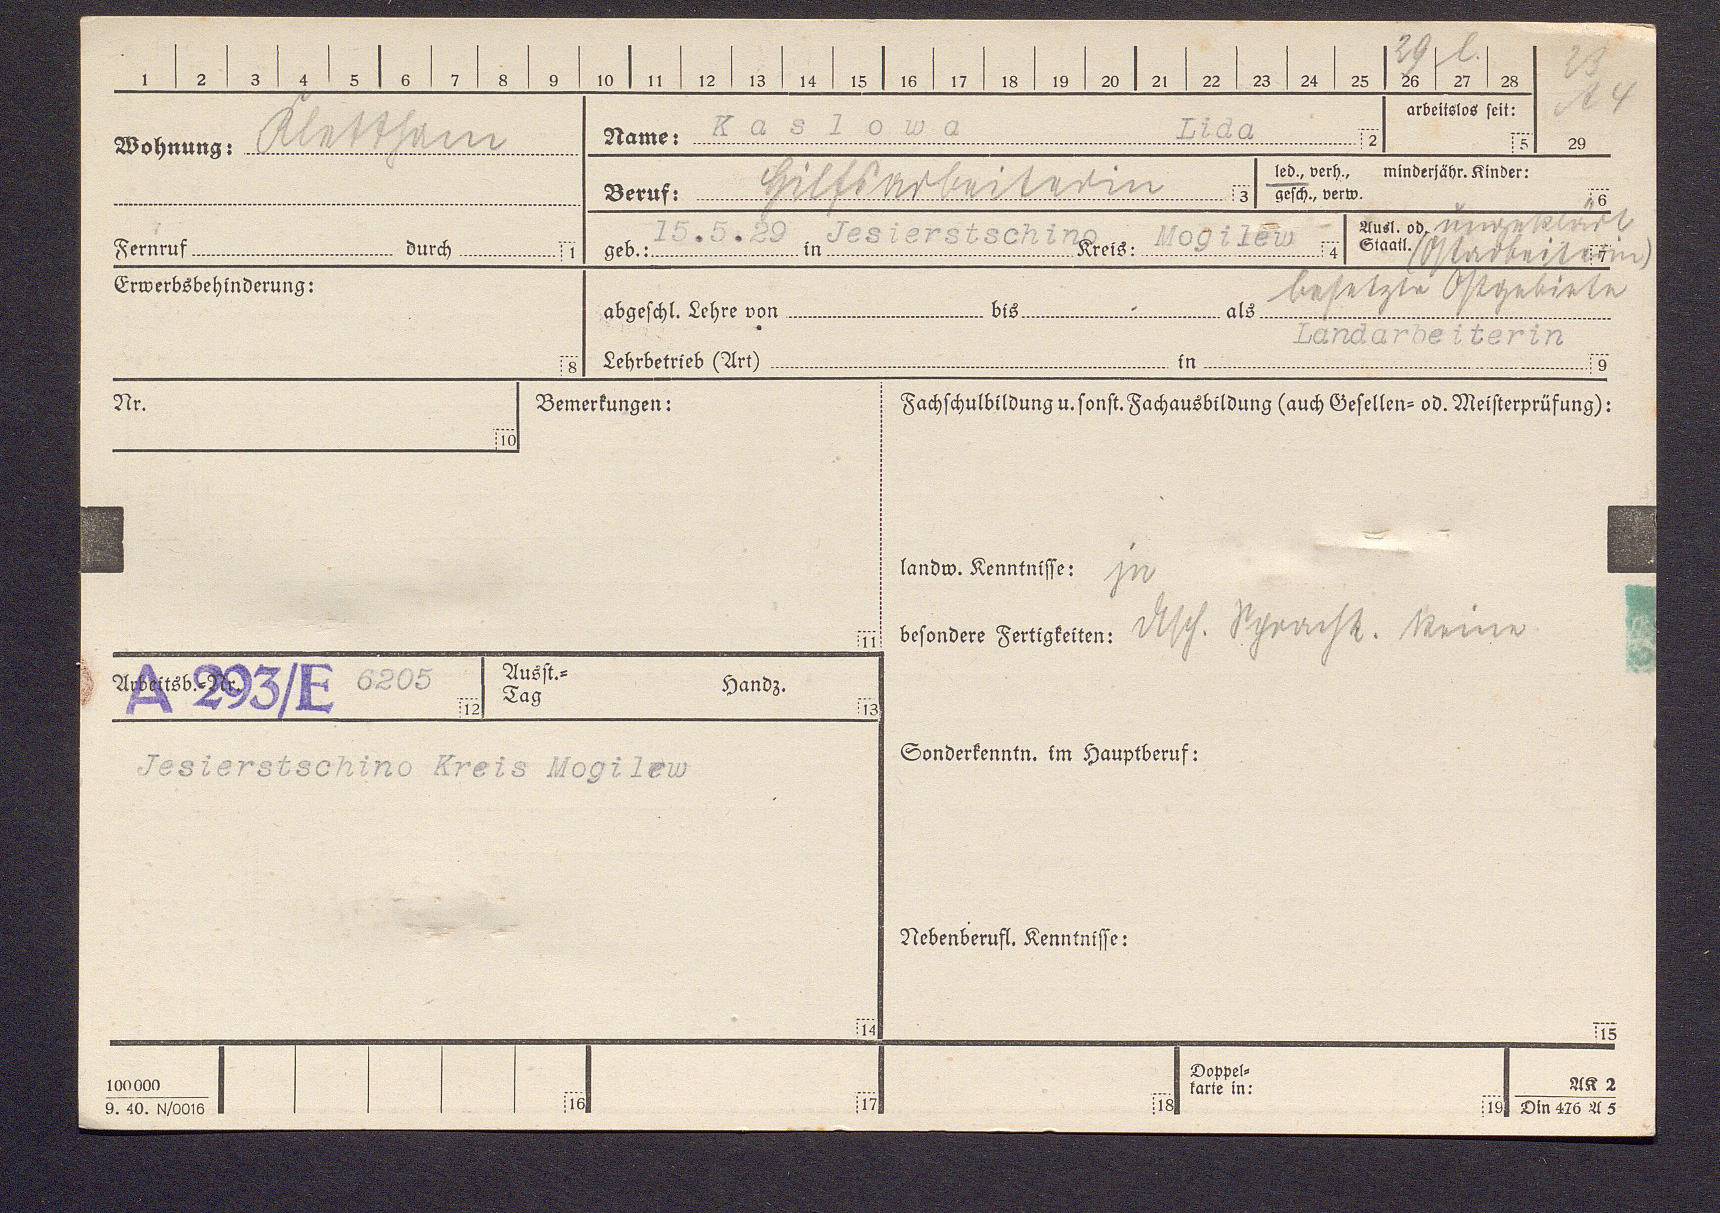 29 l. 23
1 2 3 4 5 6 7 8 9 10 11 12 13 14 15 16 17 18 19 20 21 22 23 24 25 26 27 28
A 4
Wohnung: Klettham
Name: Kaslowa Lida 2
arbeitslos seit: 5 29
Beruf: Hilfsarbeiterin 3
led., verh., gesch., verw.
minderjähr. Kinder: 6
Fernruf durch 1
geb.: 15.5.29 in Jesierstschino Kreis: Mogilew 4
Ausl. od. Staatl. ungeklärt (Ostarbeiterin) 7
besetzte Ostgebiete
Erwerbsbehinderung: 8
abgeschl. Lehre von bis als
Landarbeiterin
Lehrbetrieb (Art) in 9
Nr. 10
Bemerkungen: 11
Fachschulbildung u. sonst. Fachausbildung (auch Gesellen- od. Meisterprüfung):
landw. Kenntnisse: ja
besondere Fertigkeiten: dtsch. Sprachk. keine
Arbeitsb.-Nr. A 293/E 6205 12
Ausst.-Tag Handz. 13
Jesierstschino Kreis Mogilew
14
Sonderkenntn. im Hauptberuf:
Nebenberufl. Kenntnisse:
15
100 000
9. 40. N/0016
16 17 18
Doppel-
karte in: 19
AK 2
Din 476 A 5